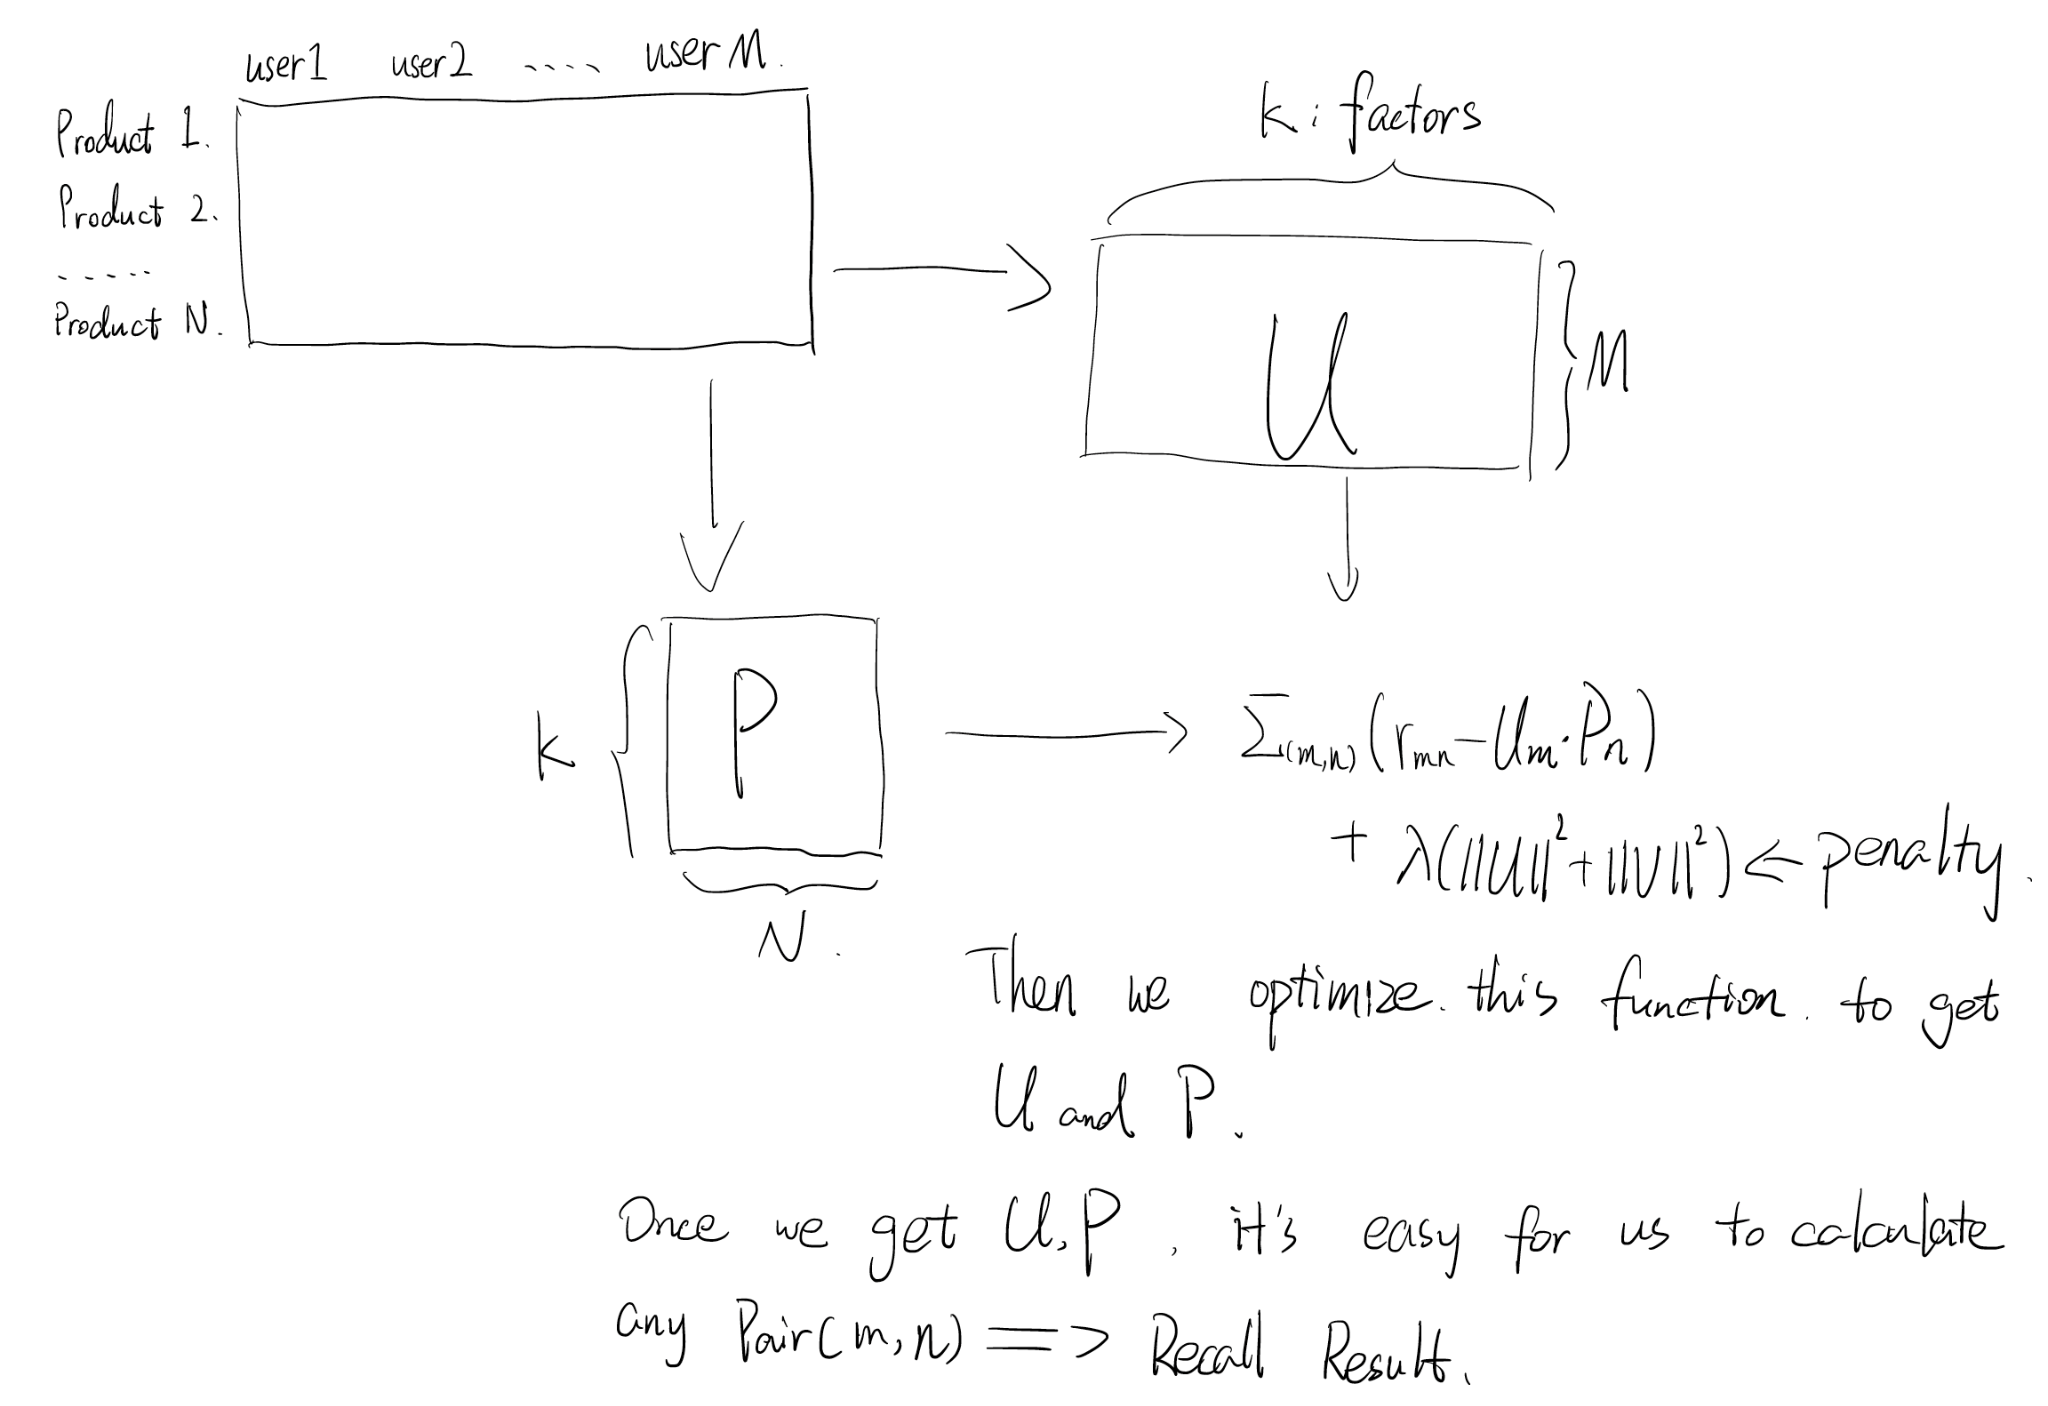 user1 user2 .... user M.
Product 1.
Product 2.
.....
Product N.
k: factors
U
M
k
P
N.
Σ(m,n)(rmn-Um·Pn)
+ λ(||U||²+||V||²) <- penalty.
Then we optimize. this function. to get
U and P.
Once we get U,P, it's easy for us to calculate
any Pair(m,n) => Recall Result.